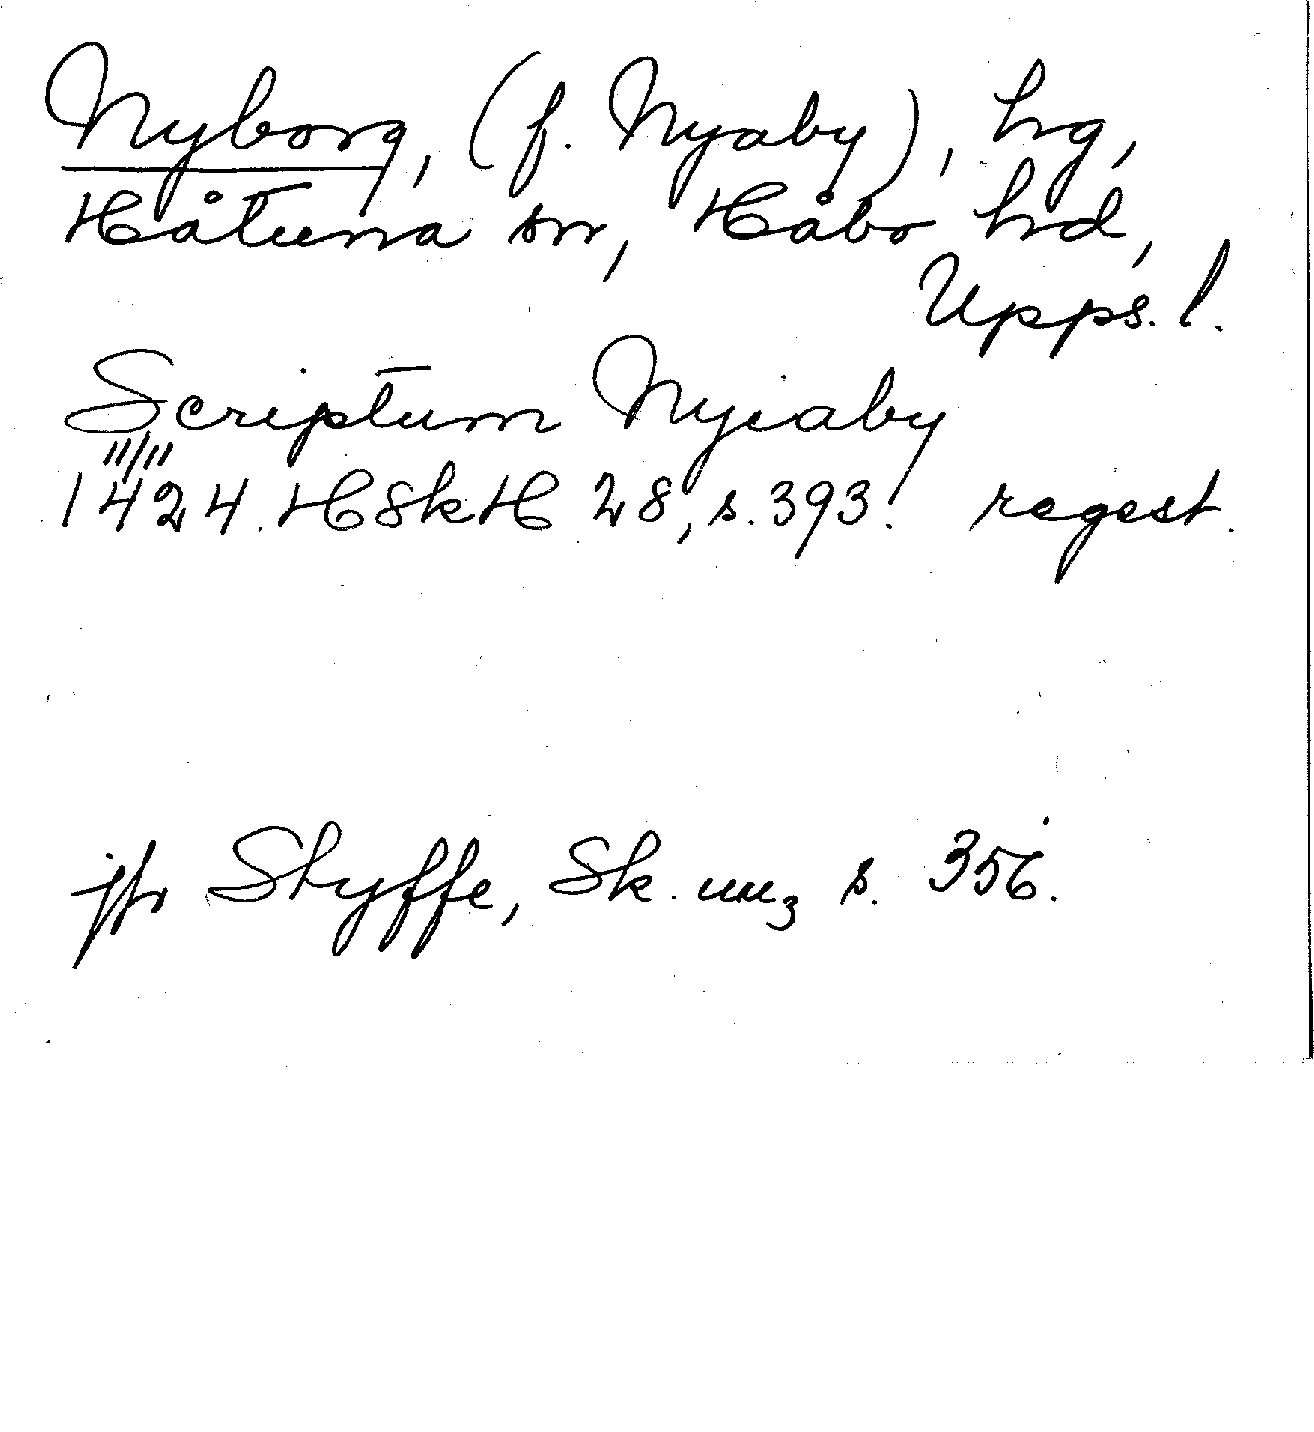 Nyborg, (f. Nyaby), hg,
Håtuna sn, Håbo hd,
Upps. l.
Scriptum Nyiaby
11/11
1424. HSkH 28, s. 393. regest.
jfr Styffe, Sk. um₃ s. 356.